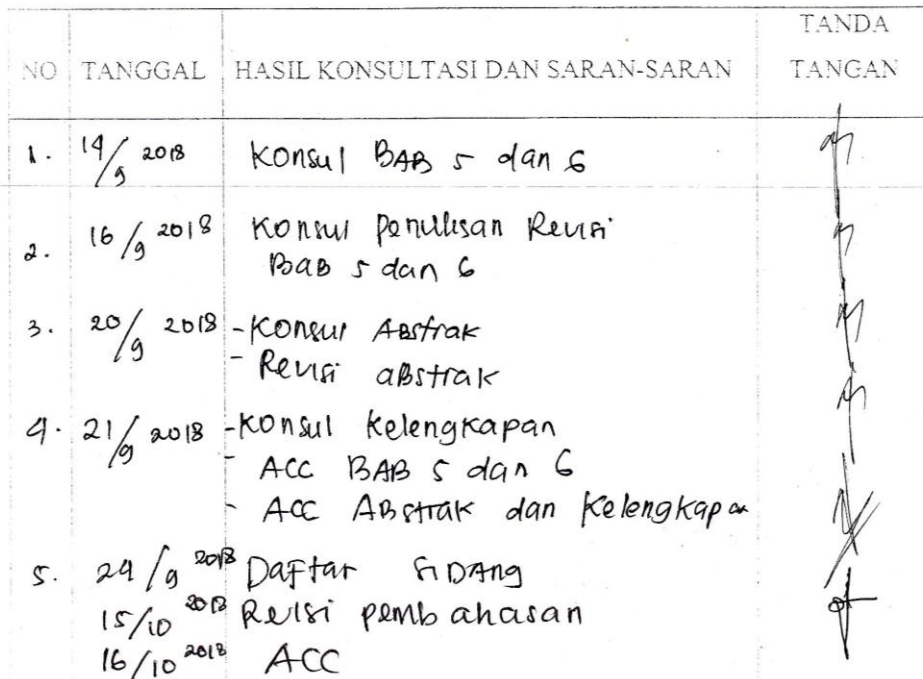 NO TANGGAL HASIL KONSULTASI DAN SARAN-SARAN TANDA TANGAN
1. 14/9 2018 Konsul BAB 5 dan 6
2. 16/9 2018 Konsul Penulisan Revisi
BaB 5 dan 6
3. 20/9 2018 - Konsul Abstrak
- Revisi aBstrak
4. 21/9 2018 - Konsul Kelengkapan
- ACC BAB 5 dan 6
- ACC ABstrak dan Kelengkapan
5. 24/9 2018 Daftar SIDAng
15/10 2018 Revisi pembahasan
16/10 2018 ACC